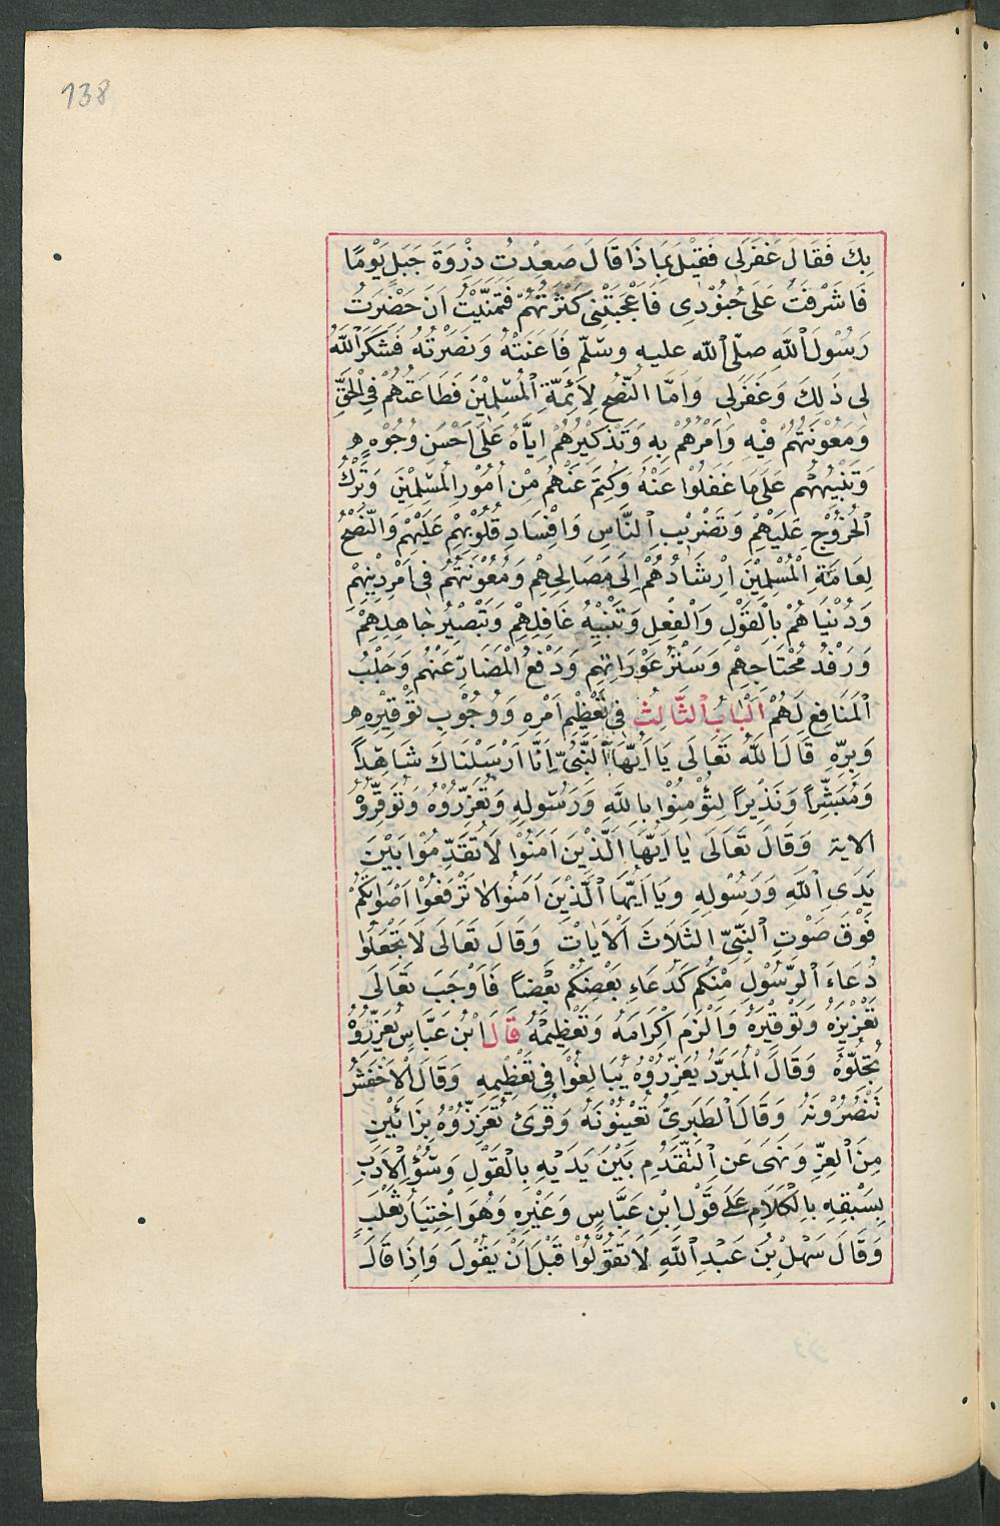 138
بِكَ فَقَالَ غَفَرَلِى فَقِيْلَ بِمَا ذَا قَالَ صَعِدْتُ ذِرْوَةَ جَبَلٍ يَوْمًا
فَاَشْرَفْتُ عَلَى جُنُوْدِى فَاَعْجَبَتْنِى كَثْرَتُهُمْ فَتَمَنَّيْتُ اَنَ حَضَرْتُ
رَسُوْلَ اللهِ صلّى الله عليه وسّلم فَاَعَنْتُهُ وَنَصَرْتُهُ فَشَكَرَ اللهُ
لِى ذَلِكَ وَغَفَرَلِى وَاَمَّا النُّصْحُ لِاَئِمَّةِ الْمُسْلِمِيْنَ فَطَاعَتُهُمْ فِى الْحَقِّ
وَمَعُوْنَتُهُمْ فِيْهِ وَاَمْرُهُمْ بِهِ وَتَذْكِيْرُهُمْ اِيَّاهُ عَلَى اَحْسَنِ وُجُوْهٍ
وَتَنْبِيْهُهُمْ عَلَى مَا غَفَلُوْا عَنْهُ وَكُتِمَ عَنْهُمْ مِنْ اُمُوْرِ الْمُسْلِمِيْنَ وَتَرْكُ
الْخُرُوْجِ عَلَيْهِمْ وَتَضْرِيْبِ النَّاسِ وَاِفْسَادِ قُلُوْبِهِمْ عَلَيْهِمْ وَالنُّصْحُ
لِعَامَّةِ الْمُسْلِمِيْنَ اِرْشَادُهُمْ اِلَى مَصَالِحِهِمْ وَمُعُوْنَتُهُمْ فِى اَمْرِ دِيْنِهِمْ
وَدُنْيَاهُمْ بِالْقَوْلِ وَالْفِعْلِ وَتَنْبِيْهُ غَافِلِهِمْ وَتَبْصِيْرُ جَاهِلِهِمْ
وَرَفْدُ مُحْتَاجِهِمْ وَسَتْرُ عَوْرَاتِهِم وَدَفْعُ الْمَضَارِّ عَنْهُم وَجَلْبُ
الْمَنَافِعِ لَهُمْ اَلْبَابُ الثَّالِثُ فِى تَعْظِيْمِ اَمْرِهِ وَوُجُوْبِ تَوْقِيْرِهِ
وَبِرِّهِ قَالَ اللهُ تَعَالَى يَا اَيُّهَا النَّبِىُّ اِنَّا اَرْسَلْنَاكَ شَاهِدًا
وَمُبَشِّرًا وَنَذِيْرًا لِتُؤْمِنُوْا بِاللهِ وَرَسُولِهِ وَتُعَزِّرُوْهُ وَتُوَقِّرُوْهُ
الاية وَقَالَ تَعَالَى يَا اَيُّهَا الَّذِيْنَ اَمَنُوْا لَا تُقَدِّمُوْا بَيْنَ
يَدَىِ اللهِ وَرَسُوْلِهِ وَيَا اَيُّهَا الَّذِيْنَ اَمَنُوا لَا تَرْفَعُوْا اَصْوَاتَكُمْ
فَوْقَ صَوْتِ النَّبِىِّ الثَلَاثَ الْاَيَاتْ وَقَالَ تَعَالَى لَا تَجْعَلُوْا
دُعَاءَ الرَّسُوْلِ مِنْكُم كَدُعَاءِ بَعْضِكُمْ بَعْضًا فَاَوْجَبَ تَعَالَى
تَعْزِيْزَهُ وَتَوْقِيْرَهُ وَاَلْزَمَ اِكْرَامَهُ وَتَعْظِيْمَهُ قَالَ ابْنُ عَبَّاسٍ تُعَزِّرُوْهُ
تُجِلُّوْهُ وَقَالَ الْمُبَرَّدُ يُعَزِّرُوْهُ يُبَالِغُوْا فِى تَعْظِيْمِهِ وَقَالَ الْاَخْفَشُ
تَنْصُرُوْنَهُ وَقَالَ الطَبَرِىُّ تُعِيْنُوْنَهُ وَقُرِئَ تُعَزِّزُوْهُ بِزَائَيْنِ
مِنَ الْعِزِّ وَنَهَى عَنِ التَّقَدُمِ بَيْنَ يَدَيْهِ بِالْقَوْلِ وَسُوْءِ الْاَدَبِ
بِسَبْقِهِ بِالْكَلَامِ عَلَى قَوْلِ ابْنِ عَبَّاسٍ وَغَيْرِهِ وَهُوَ اِخْتِيَارُ ثَعْلَبٍ
وَقَالَ سَهْلُ بْنُ عَبْدِ اللهِ لَا تَقُوْلُوْا قَبْلَ اَنْ يَقُوْلَ وَاِذَا قَالَ